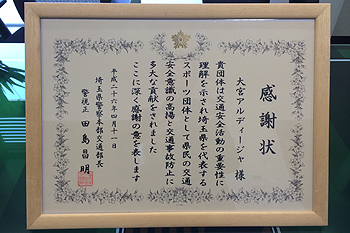 感謝状
大宮アルディージャ 様
貴団体は交通安全活動の重要性に
理解を示され埼玉県を代表する
スポーツ団体として県民の交通
安全意識の高揚と交通事故防止に
多大な貢献をされました
ここに深く感謝の意を表します
平成二十六年四月十一日
埼玉県警察本部交通部長
警視正 田島昌明